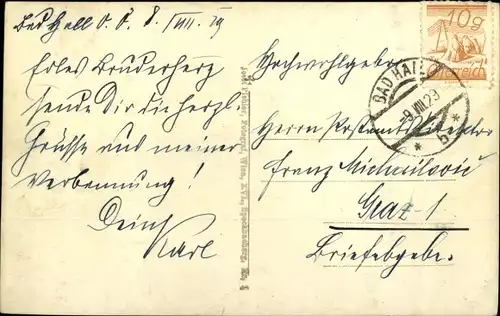 Bad Hall O. Ö. 8./VIII. 29
Edles Bruderherz
sende Dir die herzl.
Grüsse aus meiner
Verbannung!
Dein
Karl
Hochwohlgeboren
Herrn Postamtsdirektor
Franz Michailović
Graz-1
Briefabgabe.
10g
Österreich
BAD HALL
-9.VIII.29
* b *